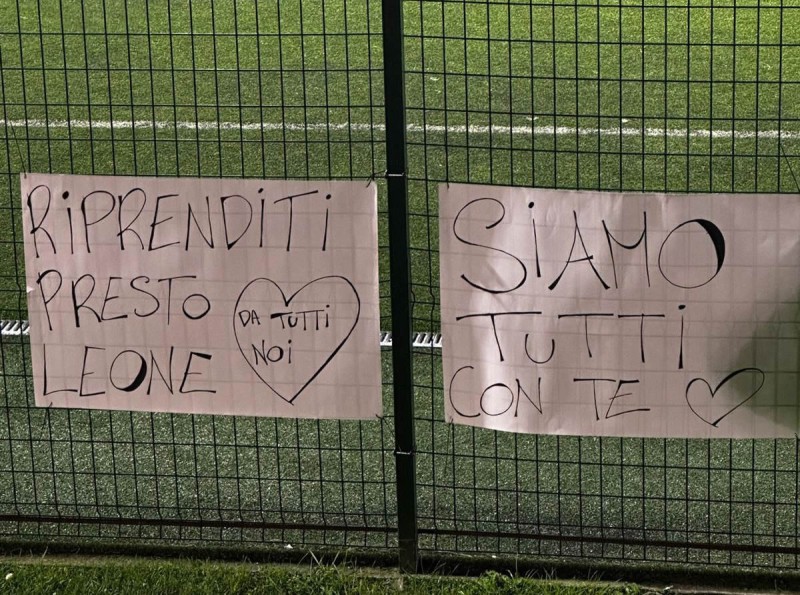 RiPRENDiTi
PRESTO
LEONE
DA TUTTi
NOi
SiAMO
TuTTi
CON TE